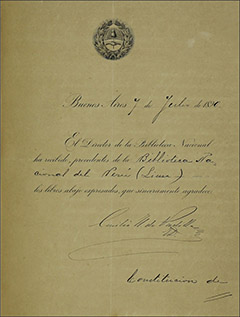 Buenos Aires 7 de Julio de
El Director de la Biblioteca Nacional
ha recibido, procedentes de la Biblioteca Na-
cional del Perú (Lima)
los libros abajo expresados, que sinceramente agradece.
Constitucion de